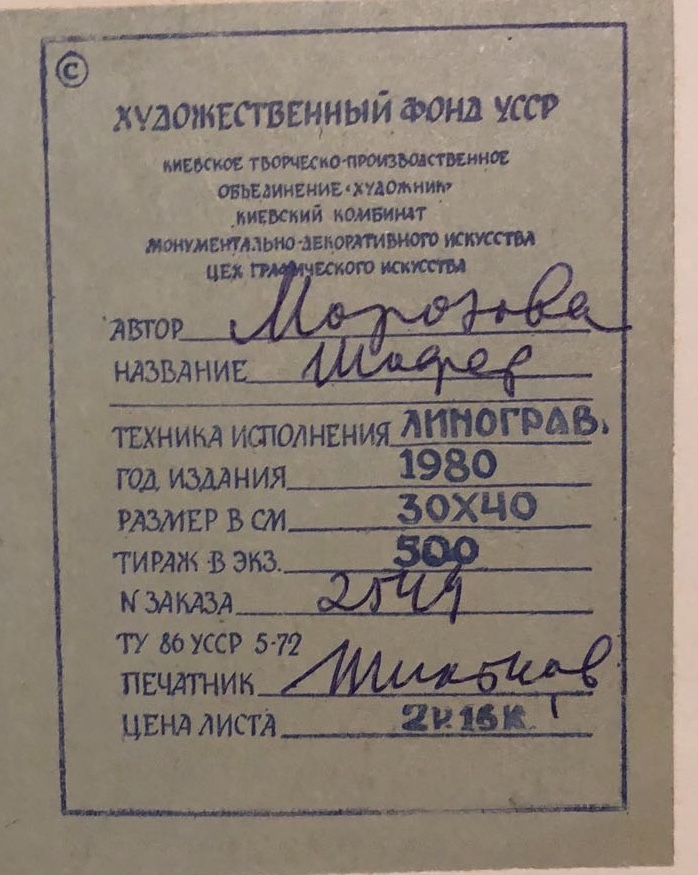 ©
ХУДОЖЕСТВЕННЫЙ ФОНД УССР
КИЕВСКОЕ ТВОРЧЕСКО-ПРОИЗВОДСТВЕННОЕ
ОБЪЕДИНЕНИЕ «ХУДОЖНИК»
КИЕВСКИЙ КОМБИНАТ
МОНУМЕНТАЛЬНО-ДЕКОРАТИВНОГО ИСКУССТВА
ЦЕХ ГРАФИЧЕСКОГО ИСКУССТВА
АВТОР Морозова
НАЗВАНИЕ
ТЕХНИКА ИСПОЛНЕНИЯ ЛИНОГРАВ.
ГОД ИЗДАНИЯ 1980
РАЗМЕР В СМ 30Х40
ТИРАЖ В ЭКЗ. 500
N ЗАКАЗА
ТУ 86 УССР 5-72
ПЕЧАТНИК
ЦЕНА ЛИСТА